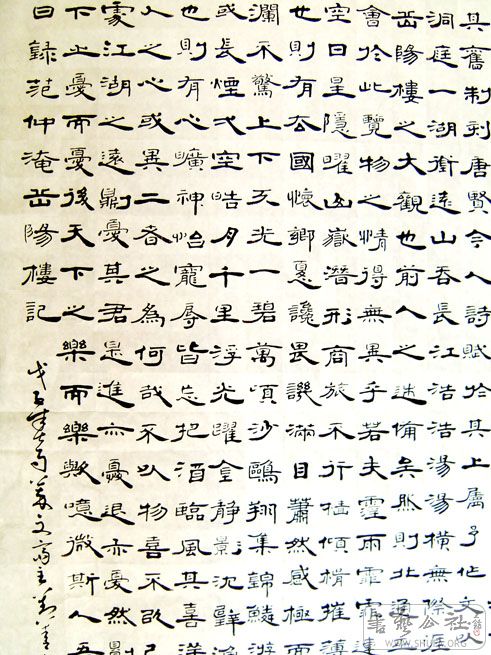 其舊制刻唐賢今人詩賦於其上屬予作文
洞庭一湖銜遠山吞長江浩浩湯湯橫無際涯
岳陽樓之大觀也前人之述備矣然則北通
會於此覽物之情得無異乎若夫霪雨霏霏連
空日星隱曜山嶽潛形商旅不行檣傾楫摧薄
也則有去國懷鄉憂讒畏譏滿目蕭然感極
瀾不驚上下天光一碧萬頃沙鷗翔集錦鱗游
或長煙一空皓月千里浮光躍金靜影沈璧
也則有心曠神怡寵辱皆忘把酒臨風其喜洋
人之心或異二者之為何哉不以物喜不以己
處江湖之遠則憂其君是進亦憂退亦憂然則
下之憂而憂後天下之樂而樂歟噫微斯人吾
日錄范仲淹岳陽樓記
戊子年